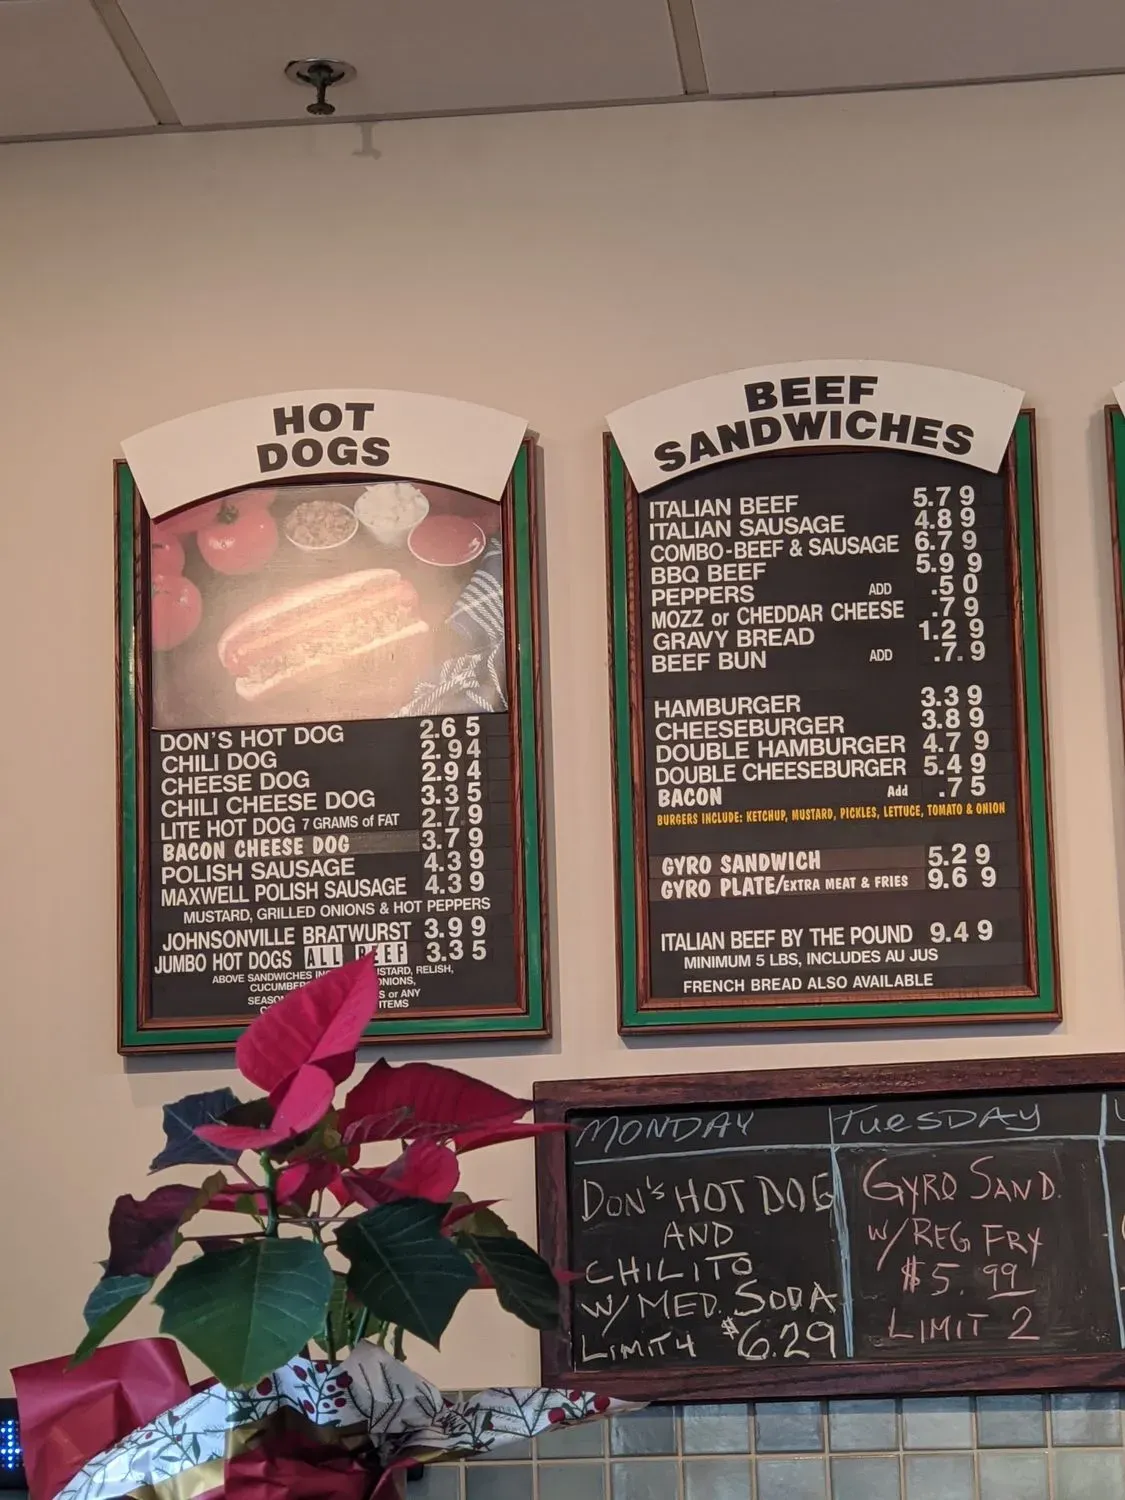 HOT
DOGS
DON'S HOT DOG 2.65
CHILI DOG 2.94
CHEESE DOG 2.94
CHILI CHEESE DOG 3.35
LITE HOT DOG 7 GRAMS of FAT 2.79
BACON CHEESE DOG 3.79
POLISH SAUSAGE 4.39
MAXWELL POLISH SAUSAGE 4.39
MUSTARD, GRILLED ONIONS & HOT PEPPERS
JOHNSONVILLE BRATWURST 3.99
JUMBO HOT DOGS ALL BEEF 3.35
ABOVE SANDWICHES RELISH,
or ANY
ITEMS
BEEF
SANDWICHES
ITALIAN BEEF 5.79
ITALIAN SAUSAGE 4.89
COMBO-BEEF & SAUSAGE 6.79
BBQ BEEF 5.99
PEPPERS ADD .50
MOZZ or CHEDDAR CHEESE .79
GRAVY BREAD 1.29
BEEF BUN ADD .7.9
HAMBURGER 3.39
CHEESEBURGER 3.89
DOUBLE HAMBURGER 4.79
DOUBLE CHEESEBURGER 5.49
BACON Add .75
BURGERS INCLUDE: KETCHUP, MUSTARD, PICKLES, LETTUCE, TOMATO & ONION
GYRO SANDWICH 5.29
GYRO PLATE/EXTRA MEAT & FRIES 9.69
ITALIAN BEEF BY THE POUND 9.49
MINIMUM 5 LBS, INCLUDES AU JUS
FRENCH BREAD ALSO AVAILABLE
MONDAY
DON'S HOT DOG
AND
CHILITO
W/ MED. SODA
LIMIT 4 $6.29
TUESDAY
GYRO SAND.
W/ REG FRY
$5.99
LIMIT 2